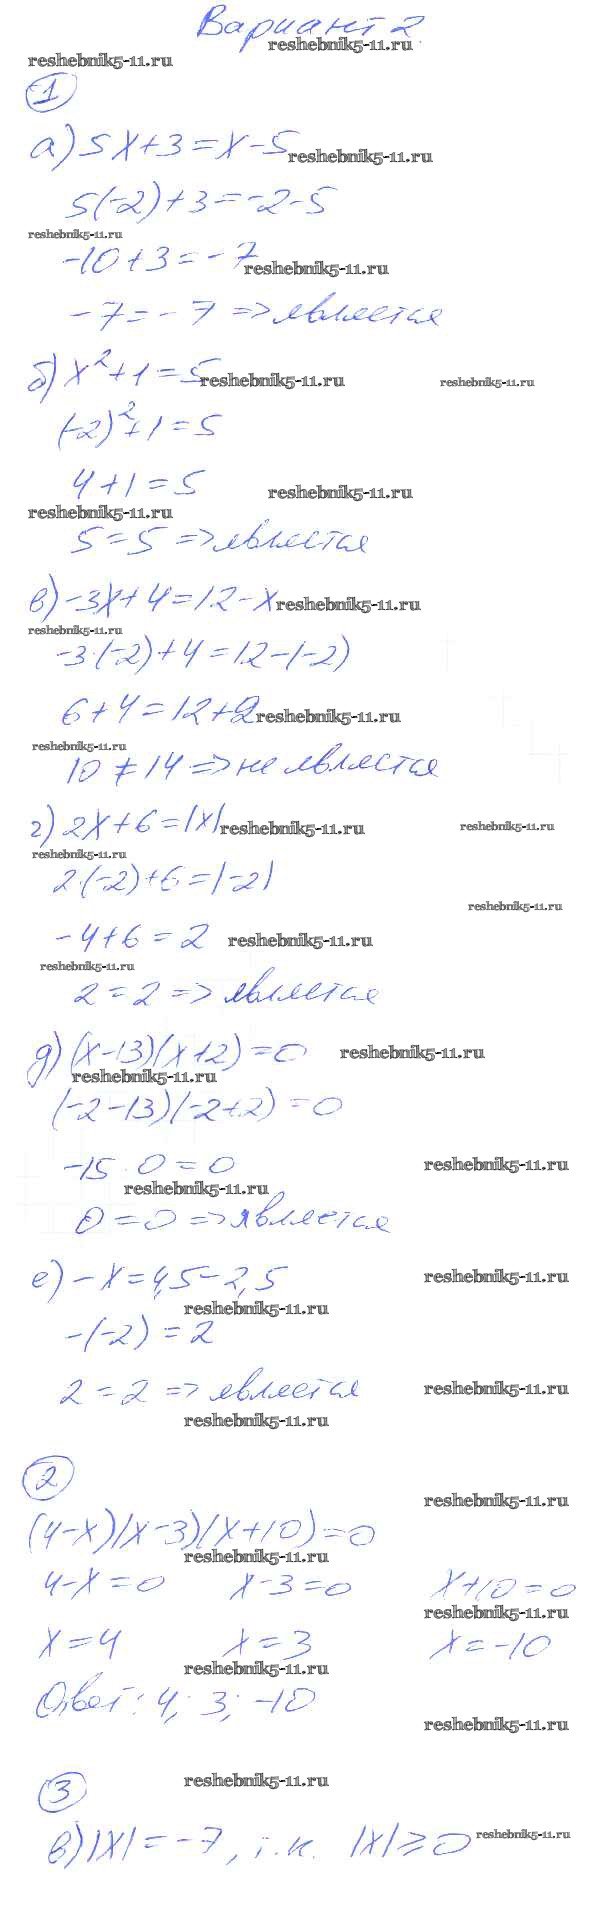 Вариант 2.
reshebnik5-11.ru
reshebnik5-11.ru
1
а) 5x+3=x-5
reshebnik5-11.ru
5(-2)+3=-2-5
reshebnik5-11.ru
-10+3=-7
reshebnik5-11.ru
-7=-7 => является
б) x²+1=5
reshebnik5-11.ru
reshebnik5-11.ru
(-2)²+1=5
4+1=5
reshebnik5-11.ru
reshebnik5-11.ru
5=5 => является
в) -3x+4=12-x
reshebnik5-11.ru
reshebnik5-11.ru
-3·(-2)+4=12-(-2)
6+4=12+2
reshebnik5-11.ru
reshebnik5-11.ru
10≠14 => не является
г) 2x+6=|x|
reshebnik5-11.ru
reshebnik5-11.ru
reshebnik5-11.ru
2·(-2)+6=|-2|
reshebnik5-11.ru
-4+6=2
reshebnik5-11.ru
reshebnik5-11.ru
2=2 => является
д) (x-13)(x+2)=0
reshebnik5-11.ru
reshebnik5-11.ru
(-2-13)(-2+2)=0
-15·0=0
reshebnik5-11.ru
reshebnik5-11.ru
0=0 => является
е) -x=4,5-2,5
reshebnik5-11.ru
reshebnik5-11.ru
-(-2)=2
2=2 => является
reshebnik5-11.ru
reshebnik5-11.ru
2
reshebnik5-11.ru
(4-x)(x-3)(x+10)=0
reshebnik5-11.ru
4-x=0 x-3=0 x+10=0
reshebnik5-11.ru
x=4 x=3 x=-10
reshebnik5-11.ru
Ответ: 4; 3; -10
reshebnik5-11.ru
3
reshebnik5-11.ru
в) |x|=-7, т.к. |x|≥0
reshebnik5-11.ru